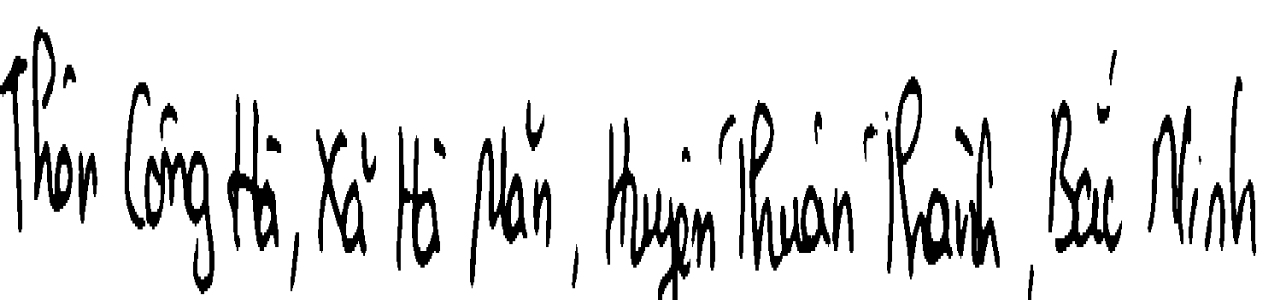 Thôn Công Hà, Xã Hà Mãn, Huyện Thuận Thành, Bắc Ninh